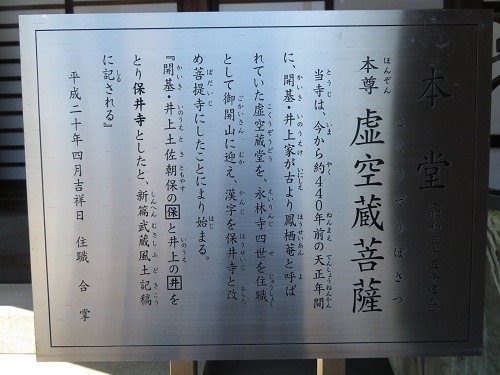 本堂
本尊 虚空蔵菩薩
当寺は、今から約440年前の天正年間
に、開基・井上家が古より鳳栖菴と呼ば
れていた虚空蔵堂を、永林寺四世を住職
として御開山に迎え、漢字を保井寺と改
め菩提寺にしたことにより始まる。
『開基・井上土佐朝保の保と井上の井を
とり保井寺としたと、新篇武蔵風土記稿
に記される』
平成二十年四月吉祥日 住職 合掌